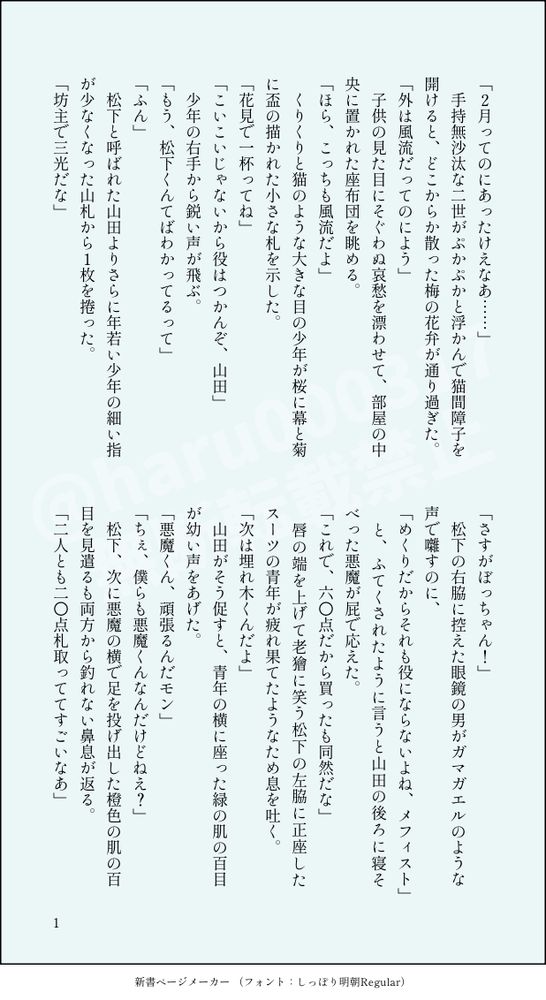 「２月ってのにあったけえなあ……」
　手持無沙汰な二世がぷかぷかと浮かんで猫間障子を
開けると、どこからか散った梅の花弁が通り過ぎた。
「外は風流だってのによう」
　子供の見た目にそぐわぬ哀愁を漂わせて、部屋の中
央に置かれた座布団を眺める。
「ほら、こっちも風流だよ」
　くりくりと猫のような大きな目の少年が桜に幕と菊
に盃の描かれた小さな札を示した。
「花見で一杯ってね」
「こいこいじゃないから役はつかんぞ、山田」
　少年の右手から鋭い声が飛ぶ。
「もう、松下くんてばわかってるって」
「ふん」
　松下と呼ばれた山田よりさらに年若い少年の細い指
が少なくなった山札から１枚を捲った。
「坊主で三光だな」
「さすがぼっちゃん！」
　松下の右脇に控えた眼鏡の男がガマガエルのような
声で囃すのに、
「めくりだからそれも役にならないよね、メフィスト」
　と、ふてくされたように言うと山田の後ろに寝そ
べった悪魔が屁で応えた。
「これで、六〇点だから買ったも同然だな」
　唇の端を上げて老獪に笑う松下の左脇に正座した
スーツの青年が疲れ果てたようなため息を吐く。
「次は埋れ木くんだよ」
　山田がそう促すと、青年の横に座った緑の肌の百目
が幼い声をあげた。
「悪魔くん、頑張るんだモン」
「ちぇ、僕らも悪魔くんなんだけどねえ？」
　松下、次に悪魔の横で足を投げ出した橙色の肌の百
目を見遣るも両方から釣れない鼻息が返る。
「二人とも二〇点札取っててすごいなあ」
1
@haru000317
転載禁止
新書ページメーカー （フォント：しっぽり明朝Regular）